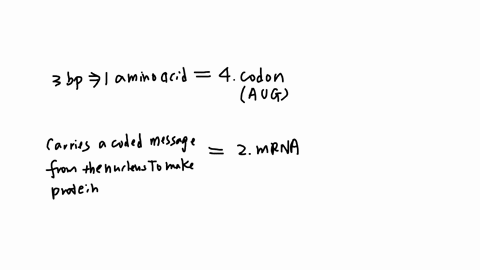 3 bp ⇒ 1 amino acid = 4. codon
(AUG)
Carries a coded message
from the nucleus To make = 2. mRNA
protein